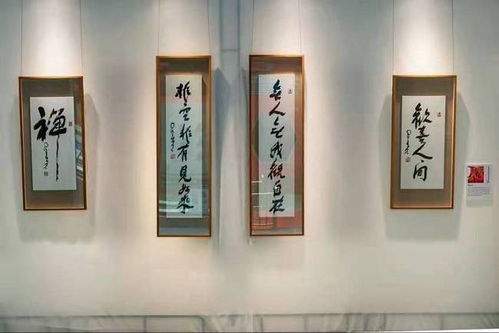 歡喜人間
無人無我觀自在
非空非有見如來
禪